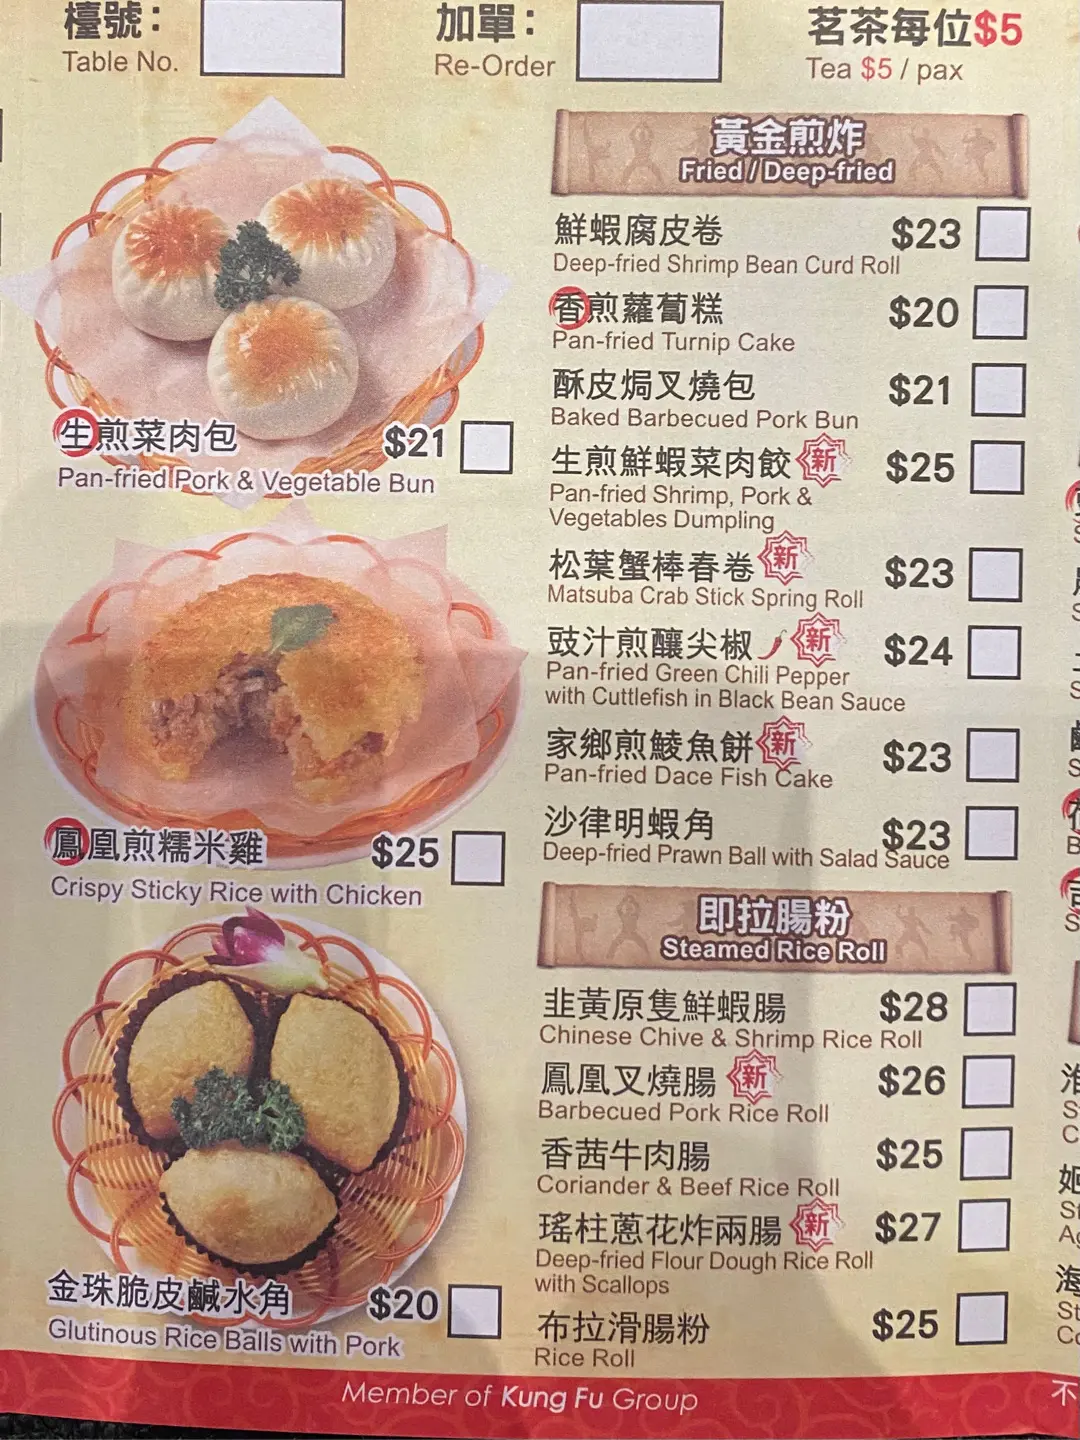 檯號：
Table No.
加單：
Re-Order
茗茶每位$5
Tea $5 / pax
生煎菜肉包 $21
Pan-fried Pork & Vegetable Bun
鳳凰煎糯米雞 $25
Crispy Sticky Rice with Chicken
金珠脆皮鹹水角 $20
Glutinous Rice Balls with Pork
黃金煎炸
Fried / Deep-fried
鮮蝦腐皮卷 $23
Deep-fried Shrimp Bean Curd Roll
香煎蘿蔔糕 $20
Pan-fried Turnip Cake
酥皮焗叉燒包 $21
Baked Barbecued Pork Bun
生煎鮮蝦菜肉餃 新 $25
Pan-fried Shrimp, Pork &
Vegetables Dumpling
松葉蟹棒春卷 新 $23
Matsuba Crab Stick Spring Roll
豉汁煎釀尖椒 新 $24
Pan-fried Green Chili Pepper
with Cuttlefish in Black Bean Sauce
家鄉煎鯪魚餅 新 $23
Pan-fried Dace Fish Cake
沙律明蝦角 $23
Deep-fried Prawn Ball with Salad Sauce
即拉腸粉
Steamed Rice Roll
韭黃原隻鮮蝦腸 $28
Chinese Chive & Shrimp Rice Roll
鳳凰叉燒腸 新 $26
Barbecued Pork Rice Roll
香茜牛肉腸 $25
Coriander & Beef Rice Roll
瑤柱蔥花炸兩腸 新 $27
Deep-fried Flour Dough Rice Roll
with Scallops
布拉滑腸粉 $25
Rice Roll
Member of Kung Fu Group